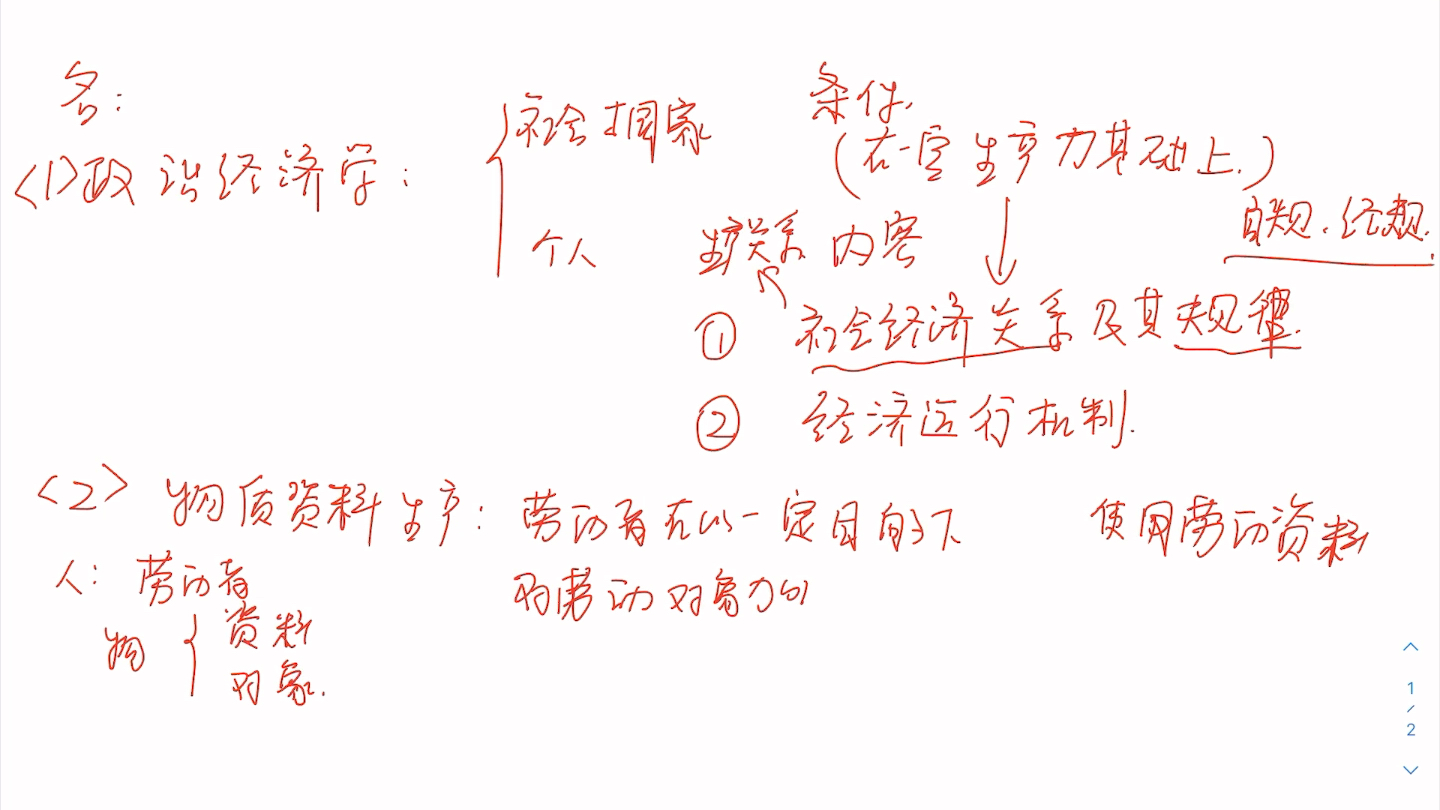 名:
<1>政治经济学:
社会 国家
个人
条件.
(在一定生产力基础上.)
自规.经规.
生产关系 内容
① 社会经济关系及其规律.
② 经济运行机制.
<2> 物质资料生产: 劳动者在以一定目的下 使用劳动资料
对劳动对象加
人: 劳动者
物 { 资料
对象.
1
/
2